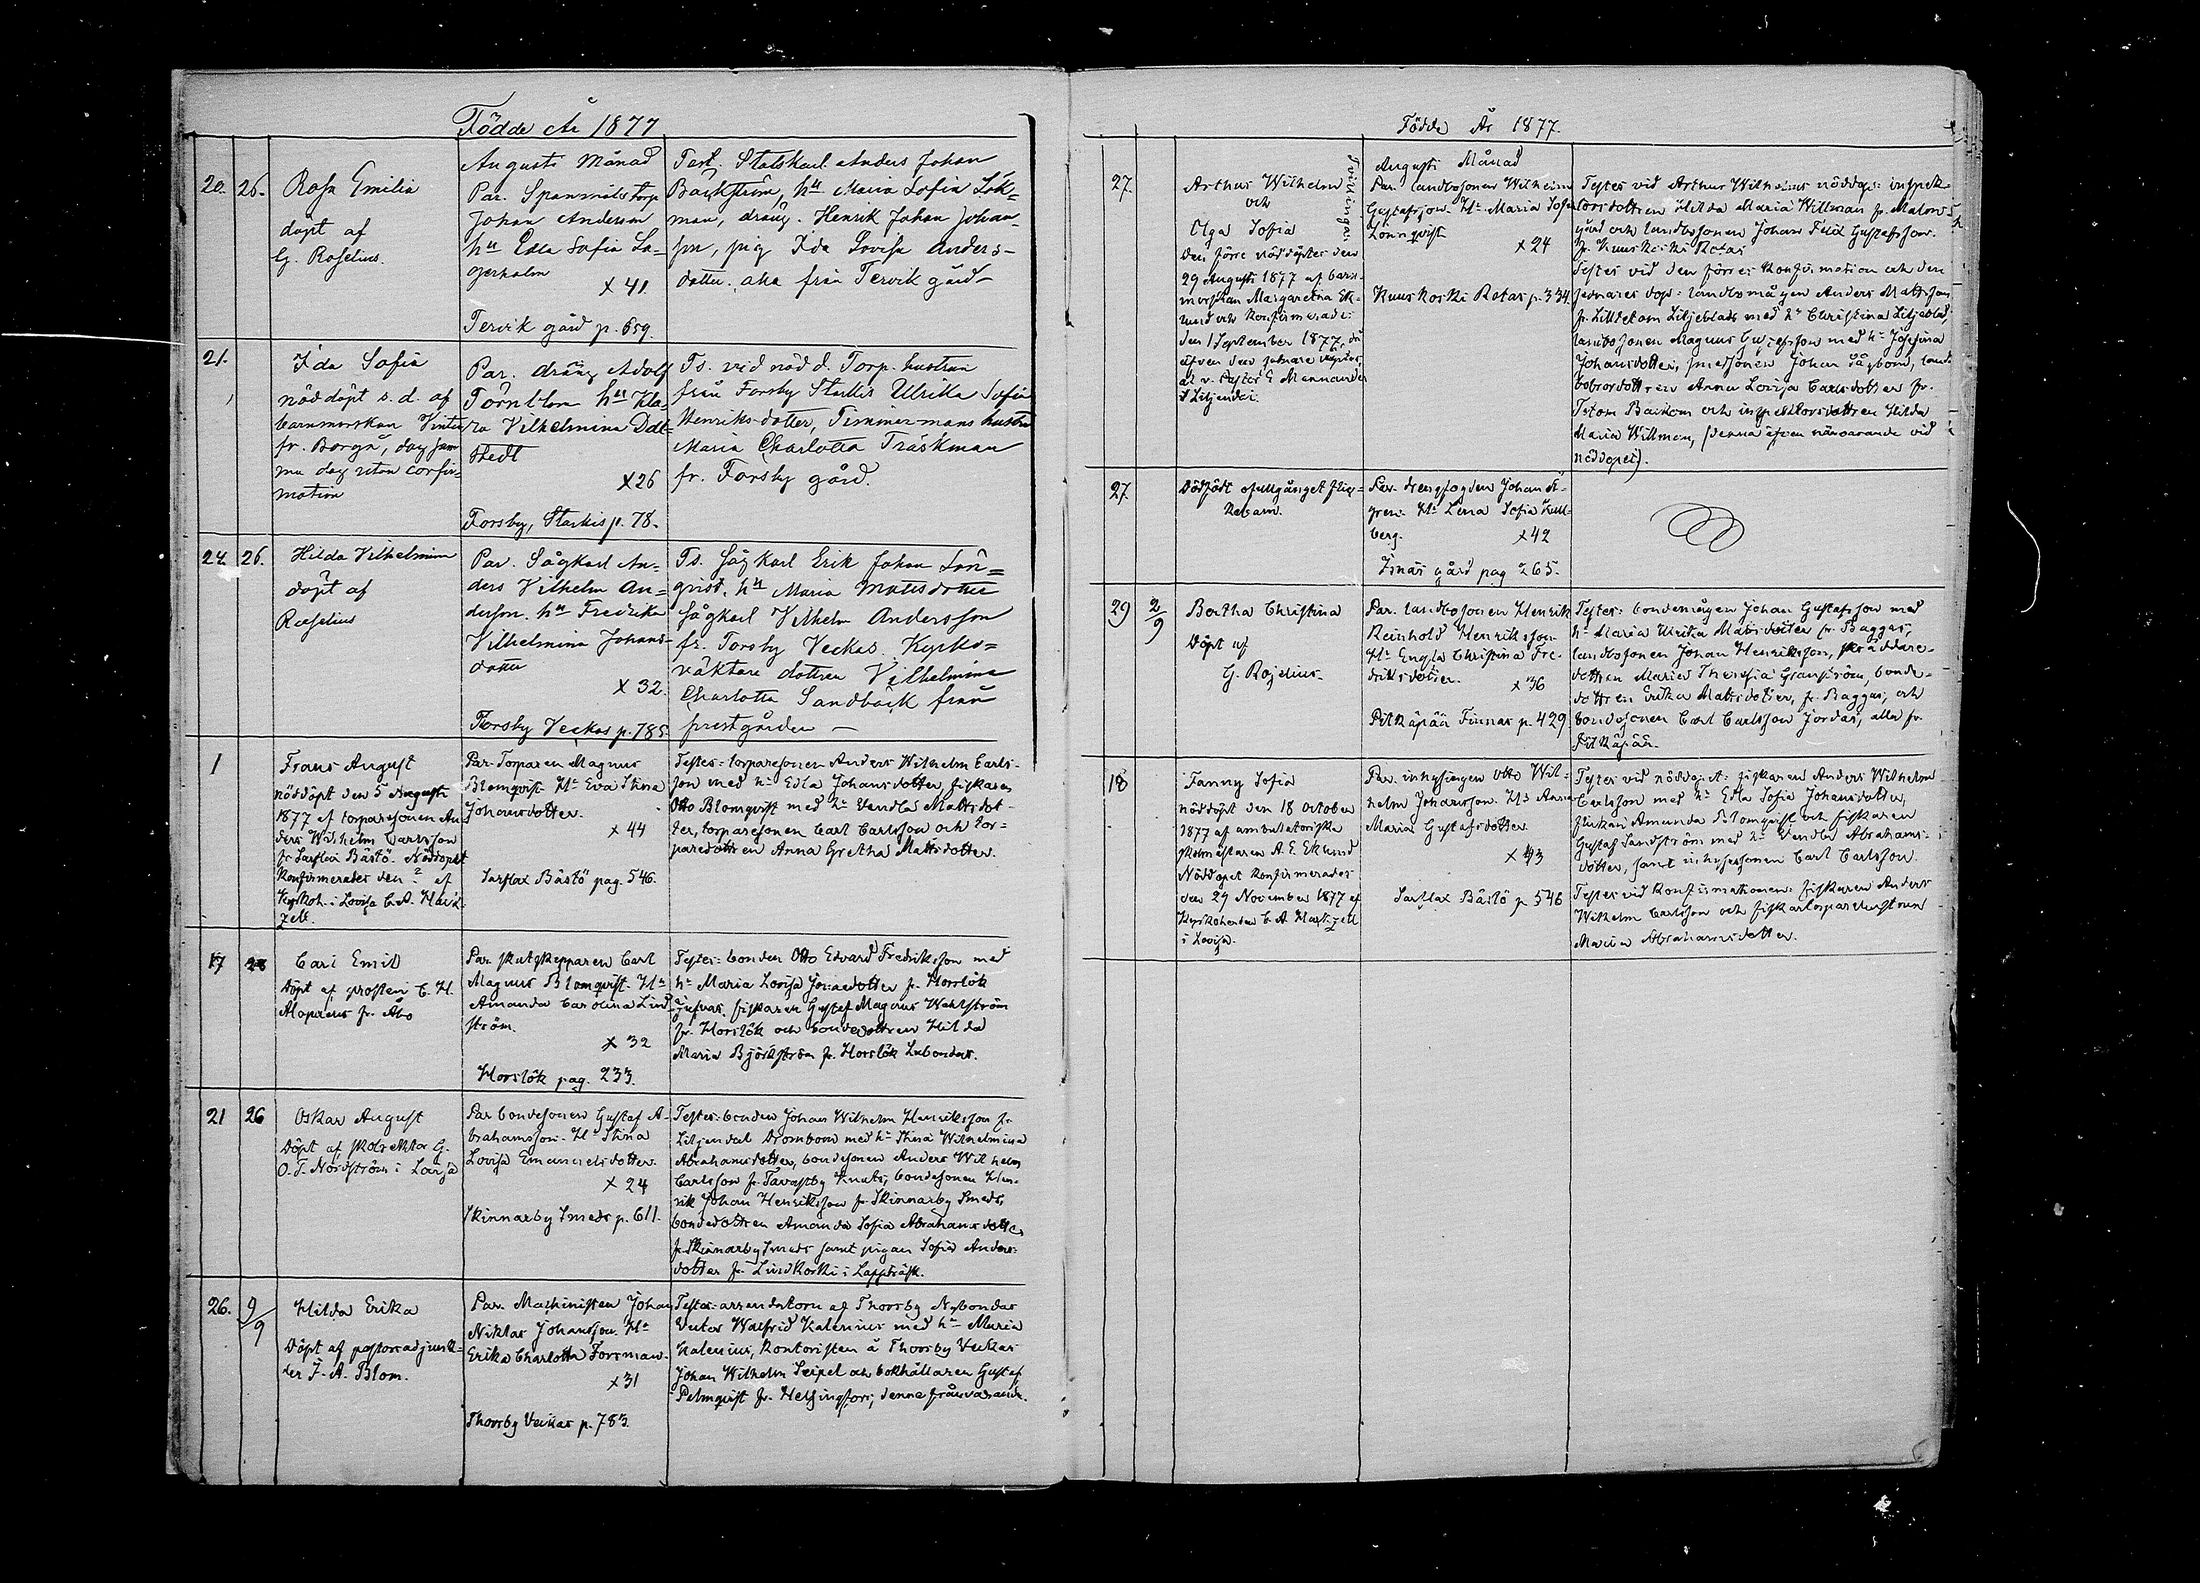 Födde År 1877
Augusti Månad
20. 26. Rosa Emilia
döpt af
G. Roselius.
Par. Spanmåls torp.
Johan Anderson
hu Edla Sofia La-
gerholm
X 41.
Tervik gård p. 659.
Test. Statskarl Anders Johan
Backström, hu Maria Sofia Lök-
man, dräng. Henrik Johan Johan-
son, pig Ida Lovisa Anders-
dotter. alla från Tervik gård
21.
Ida Sofia
nöddöpt s. d. af
barnmorskan Vinter
fr. Borgå, dog sam-
ma dag utan confir-
mation
Par. dräng Adolf
Törnblom hu Kla-
ra Vilhelmina Dal-
stedt
X26
Forsby, Starkis p. 78.
Ts. vid nöd d. Torp. hustrun
från Forsby Starkis Ulrika Sofia
Henriks-dotter, Timmermans hustru
Maria Charlotta Träskman
fr. Forsby gård.
24. 26. Hilda Vilhelmina
döpt af
Roselius
Par. Sågkarl An-
ders Vilhelm An-
dersson. hu Fredrika
Vilhelmina Johans-
dotter
X 32.
Forsby Veckas p. 785
Ts. Sågkarl Erik Johan Lön=
qvist, hu Maria Matsdotter
Sågkarl Vilhelm Andersson
fr. Forsby Veckas. Kyrko=
väktare dottren Vilhelmina
Charlotta Sandbäck från
prestgården —
1
Frans August
nöddöpt den 5 Augusti
1877 af torparesonen An-
ders Wilhelm Carlsson
fr Sarflax Båstö. Nöddopet
konfirmerades den ? af
Kyrkoh. i Lovisa C. A.
Par. Torparen Magnus
Blomqvist. Ha Eva Stina
Johansdotter.
x 44
Sarflax Båstö pag. 546.
Testes: torparesonen Anders Wilhelm Carls-
son med ha Edla Johansdotter, fiskaren
Otto Blomqvist med ha Vendla Mattsdot-
ter, torparesonen Carl Carlsson och tor=
paredottren Anna Gretha Mattsdotter.
17 28 Carl Emil
Döpt af prosten C. H.
Alopæus fr. Åbo
Par. skutskepparen Carl
Magnus Blomqvist. Ha
Amanda Carolina Lind-
ström.
x 32
Horslök pag. 233.
Testes: bonden Otto Edvard Fredriksson med
ha Maria Lovisa Jonaedotter fr. Horslök
fiskaren Gustaf Magnus Wahlström
fr. Horslök och bondedottren Hilda
Maria Björkström fr. Horslök Labondas.
21 26 Oskar August
Döpt af skolrektor G.
O. T. Nordström i Lovisa
Par. bondesonen Gustaf A-
brahamsson. Ha Stina
Lovisa Emanuelsdotter.
x 24
Skinnarby Smeds p. 611.
Testes: bonden Johan Wilhelm Henriksson fr.
Liljendal Drombom med ha Stina Wilhelmina
Abrahamsdotter, bondesonen Anders Wilhelm
Carlsson fr. Tavastby Knuts, bondesonen Hen-
rik Johan Henriksson fr. Skinnarby Smeds,
bondedottren Amanda Sofia Abrahamsdotter
fr. Skinnarby Smeds samt pigan Sofia Anders-
dotter fr. Lindkoski i Lappträsk.
26. 9/9 Hilda Erika
Döpt af pastorsadjunk-
ten J. A. Blom.
Par. Maskinisten Johan
Niklas Johansson. Ha
Erika Charlotta Forsman.
x31
Thorsby Veckas p. 783.
Testes: arrendatorn af Thorsby Nybondas
Victor Walfrid Kalenius med ha Maria
Kalenius, kontoristen å Thorsby Veckas
Johan Wilhelm Seipel och bokhållaren Gustaf
Palmqvist fr. Helsingfors; denna frånvarande.
Födde År 1877.
Augusti Månad
27. Arthur Wilhelm
och
Olga Sofia
Tvillingar
den förre nöddöptes den
29 Augusti 1877 af barn-
morskan Margaretha Ek-
lund och konfirmerades
den 1 September 1877, då
äfven den senare döptes,
af v. Pastor E Mennander
i Liljendal.
Par. landbosonen Wilhelm
Gustafsson. Ha Maria Sofia
Lönnqvist
x 24
Kuuskoski Rotas p. 334
Testes vid Arthur Wilhelms nöddop: inspek-
torsdottren Hilda Maria Willman fr. Malms
gård och landbosonen Johan Felix Gustafsson
fr. Kuuskoski Rotas
Testes vid den förres konfirmation och den
senares dop: landbomågen Anders Mattsson
fr. Lilldelam Liljeblads med ha Christina Liljeblad,
landbosonen Magnus Gustafsson med ha Josefina
Johansdotter, smedsonen Johan Sågbom, land-
bobrordottren Anna Lovisa Carlsdotter fr.
Backom och inspektorsdottren Hilda
Maria Willman, (denna äfven närvarande vid
nöddopet).
27 Dödfödt ofullgånget flic-
kebarn.
Par. drengfogden Johan
gren. Ha Lena Sofia Kull-
berg.
x42
Isnäs gård pag 265.
29 2/9 Bertha Christina
Döpt af
G. Roselius.
Par. landbosonen Henrik
Reinhold Henriksson
Ha Engla Christina Fre-
driksdotter.
x 36
Pitkäpää Finnas p. 429
Testes: bondemågen Johan Gustafsson med
ha Maria Ulrika Matsdotter fr. Baggas,
landbosonen Johan Henriksson, skräddare-
dottren Maria Theresia Granström, bonde-
dottren Erika Mattsdotter, fr. Baggas, och
bondesonen Carl Carlsson Jordas, alla fr.
Pitkäpää.
18 Fanny Sofia
nöddöpt den 18 October
1877 af ambulatoriska
skolmästaren A. E. Eklund
Nöddopet konfirmerades
den 29 November 1877 af
Kyrkoherden C. A.
i Lovisa.
Par. inhysingen Otto Wil-
helm Johansson. Ha Anna
Maria Gustafsdotter.
x 43
Sarflax Båstö p. 546
Testes vid nöddopet: fiskaren Anders Wilhelm
Carlsson med ha Edla Sofia Johansdotter,
flickan Amanda Blomqvist och fiskaren
Gustaf Sandström med ha Vendla Abrahams-
dotter, samt inhysessonen Carl Carlsson.
Testes vid konfirmationen: fiskaren Anders
Wilhelm Carlsson och fiskartorparehustrun
Maria Abrahamsdotter.